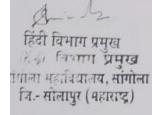 हिंदी विभाग प्रमुख
हिंदी विभाग प्रमुख
महाविद्यालय, सांगोला
जि.- सोलापुर (महाराष्ट्र)